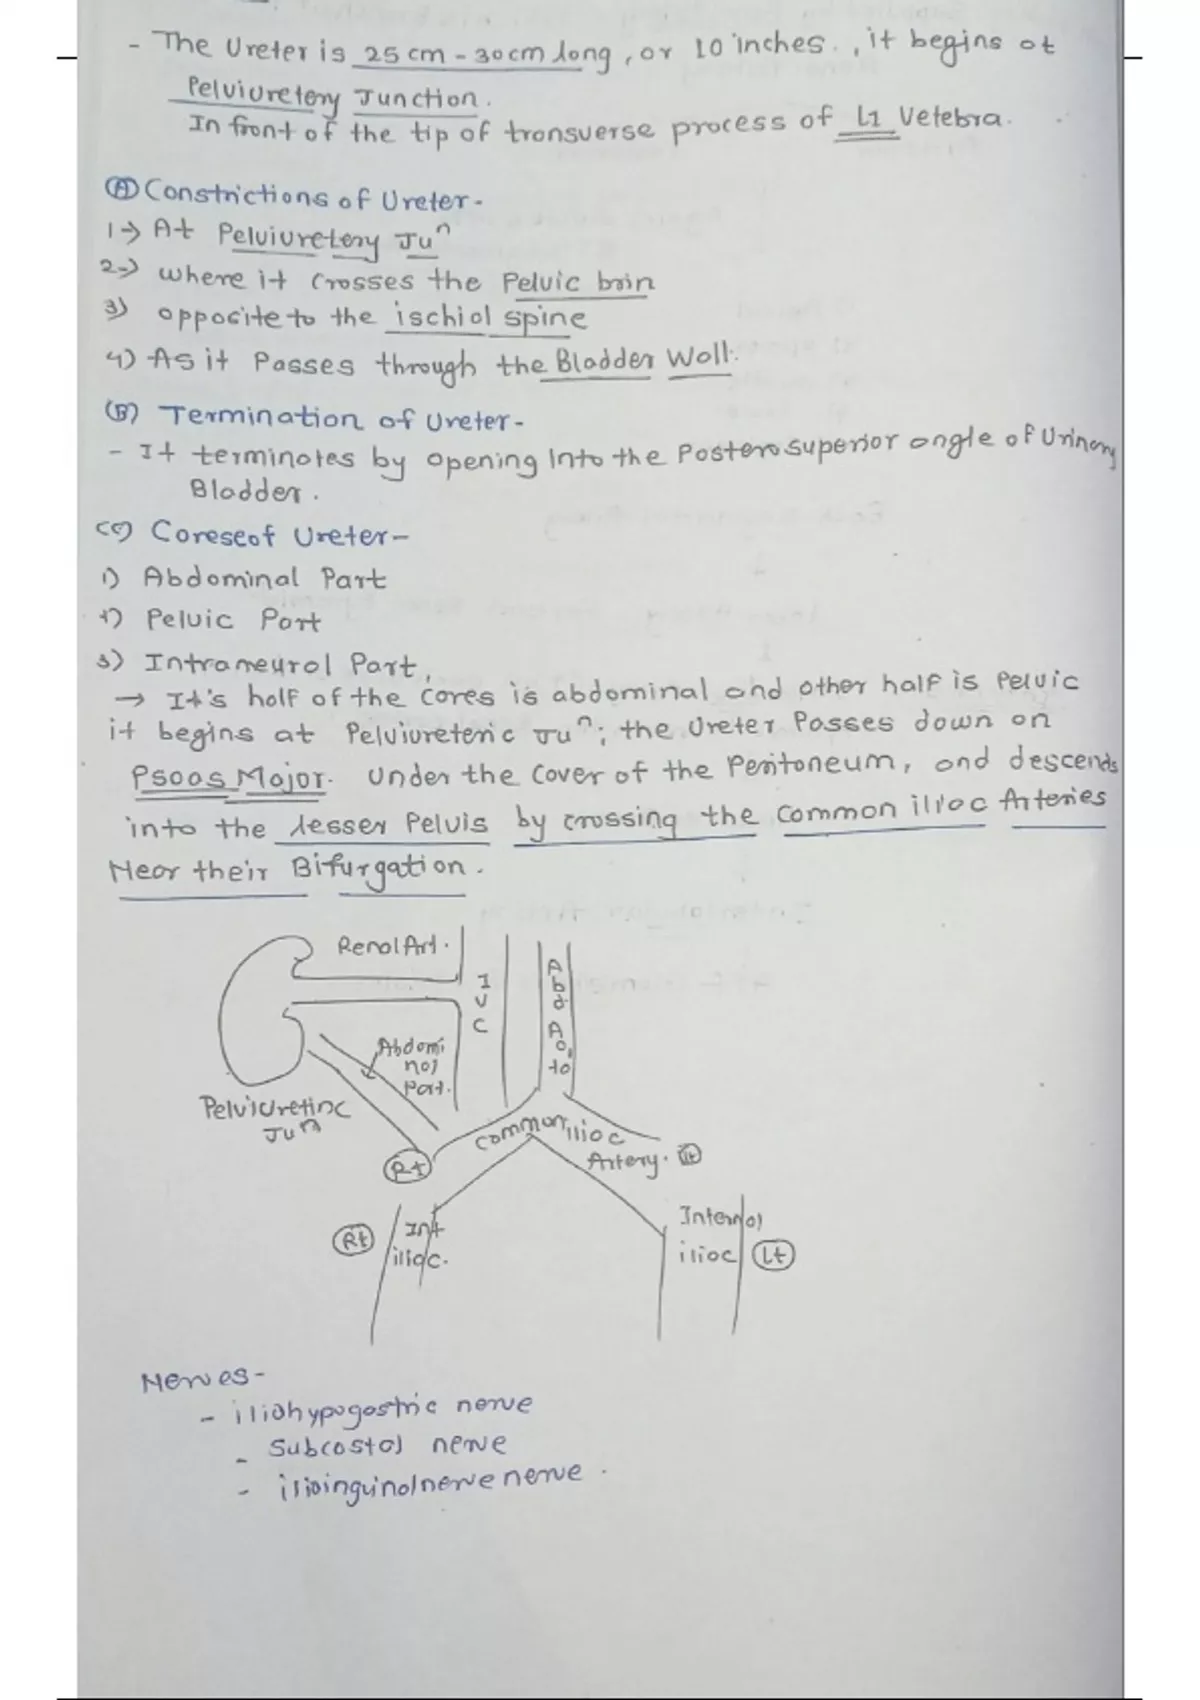 - The Ureter is 25 cm - 30 cm long, or 10 inches., it begins at
Pelviuretery Junction.
In front of the tip of transverse process of L1 Vetebra.
(A) Constrictions of Ureter -
1→ At Pelviuretery Juⁿ
2→ where it crosses the Pelvic brin
3) opposite to the ischial spine
4) As it Passes through the Bladder Wall.
(B) Termination of Ureter -
- It terminates by opening Into the Posterosuperior angle of Urinary
Bladder.
(C) Coreseof Ureter -
1) Abdominal Part
2) Pelvic Part
3) Intrameural Part.
→ It's half of the Cores is abdominal and other half is Pelvic
it begins at Pelviureteric Juⁿ; the Ureter Passes down on
Psoas Major. Under the Cover of the Peritoneum, and descends
into the lesser Pelvis by crossing the Common iliac Arteries
Near their Bifurgation.
Renal Art.
IVC
Abd Ao, to
Abdomi
nal
Part.
Pelviuretinc
Juⁿ
Common iliac
Artery. (lt)
(Rt)
(Rt) Int
iliac.
Internal
iliac (Lt)
Nerves -
- iliohypogastric nerve
- Subcostal nerve
- ilioinguinalnerve nerve.